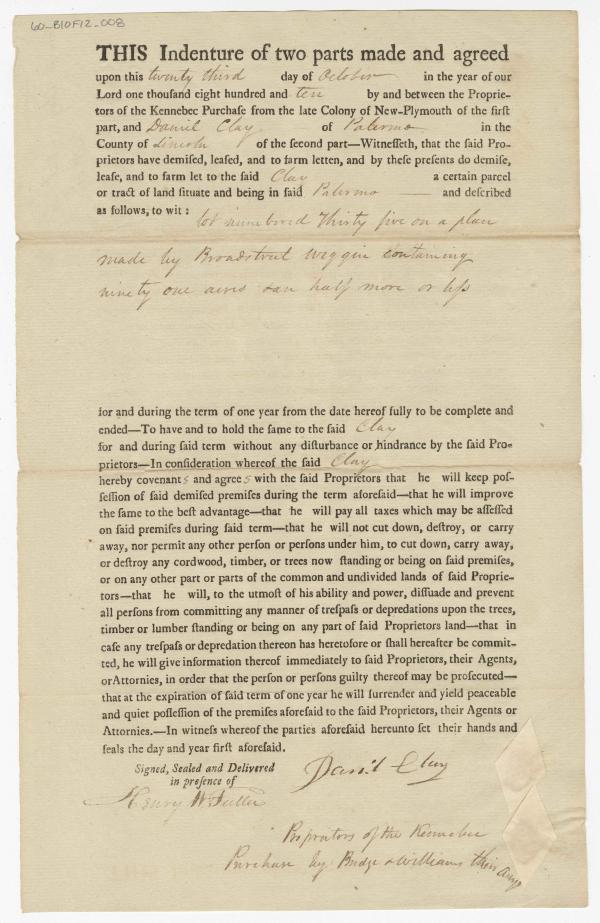 60_B10F12_008
THIS Indenture of two parts made and agreed
upon this twenty third day of October in the year of our
Lord one thouſand eight hundred and ten by and between the Proprie-
tors of the Kennebec Purchaſe from the late Colony of New-Plymouth of the firſt
part, and Daniel Clay of Palermo in the
County of Lincoln of the ſecond part—Witneſſeth, that the ſaid Pro-
prietors have demiſed, leaſed, and to farm letten, and by theſe preſents do demiſe,
leaſe, and to farm let to the ſaid Clay a certain parcel
or tract of land ſituate and being in ſaid Palermo — and deſcribed
as follows, to wit:
lot numbered Thirty five on a plan
made by Broadstreet Wiggin containing
ninety one acres & an half more or leſs
for and during the term of one year from the date hereof fully to be complete and
ended—To have and to hold the ſame to the ſaid Clay
for and during ſaid term without any diſturbance or hindrance by the ſaid Pro-
prietors—In conſideration whereof the ſaid Clay
hereby covenants and agrees with the ſaid Proprietors that he will keep poſ-
ſeſſion of ſaid demiſed premiſes during the term aforeſaid—that he will improve
the ſame to the beſt advantage—that he will pay all taxes which may be aſſeſſed
on ſaid premiſes during ſaid term—that he will not cut down, deſtroy, or carry
away, nor permit any other perſon or perſons under him, to cut down, carry away,
or deſtroy any cordwood, timber, or trees now ſtanding or being on ſaid premiſes,
or on any other part or parts of the common and undivided lands of ſaid Proprie-
tors—that he will, to the utmoſt of his ability and power, diſſuade and prevent
all perſons from committing any manner of treſpaſs or depredations upon the trees,
timber or lumber ſtanding or being on any part of ſaid Proprietors land—that in
caſe any treſpaſs or depredation thereon has heretofore or ſhall hereafter be commit-
ted, he will give information thereof immediately to ſaid Proprietors, their Agents,
or Attornies, in order that the perſon or perſons guilty thereof may be proſecuted—
that at the expiration of ſaid term of one year he will ſurrender and yield peaceable
and quiet poſſeſſion of the premiſes aforeſaid to the ſaid Proprietors, their Agents or
Attornies.—In witneſs whereof the parties aforeſaid hereunto ſet their hands and
ſeals the day and year firſt aforeſaid.
Signed, Sealed and Delivered
in preſence of
Daniel Clay
Henry W Fuller
Proprietors of the Kennebec
Purchase by Bridge & Williams their Attys